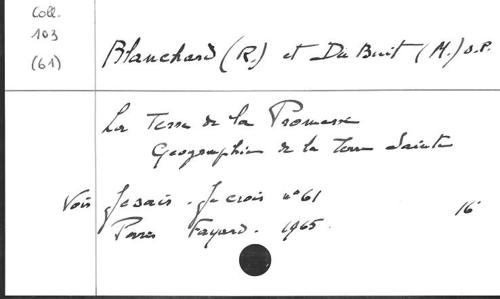 Coll.
103
(61)
Blanchard (R.) et Du Buit (M.) O.P.
La Terre de la Promesse
Géographie de la Terre Sainte
Voir Je sais. Je crois n°61
Paris Fayard. 1965. 16°